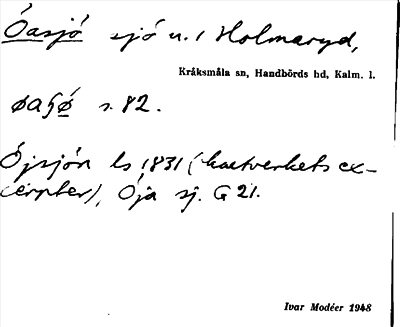 Óasjó sjö n. / Holmaryd,
Kråksmåla sn, Handbörds hd, Kalm. l.
øaʃø s. 82.
Ójsjön ls 1831 (kartverkets ex-
cerpter), Öja sj. G 21.
Ivar Modéer 1948